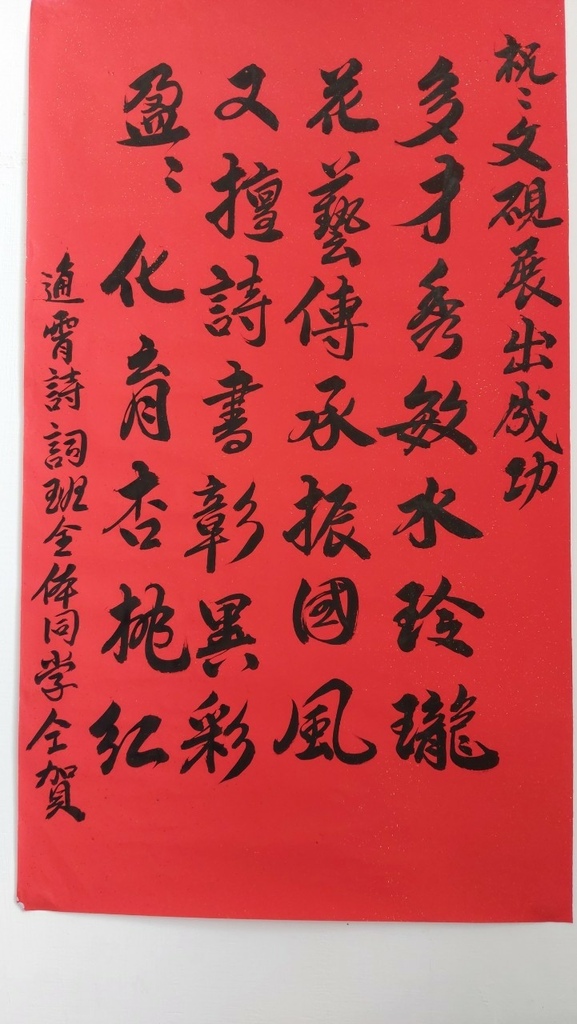 祝〻文硯展出成功
多才秀敏水玲瓏
花藝傳承振國風
又擅詩書彰異彩
盈〻化育杏桃紅
通霄詩詞班全体同学仝賀